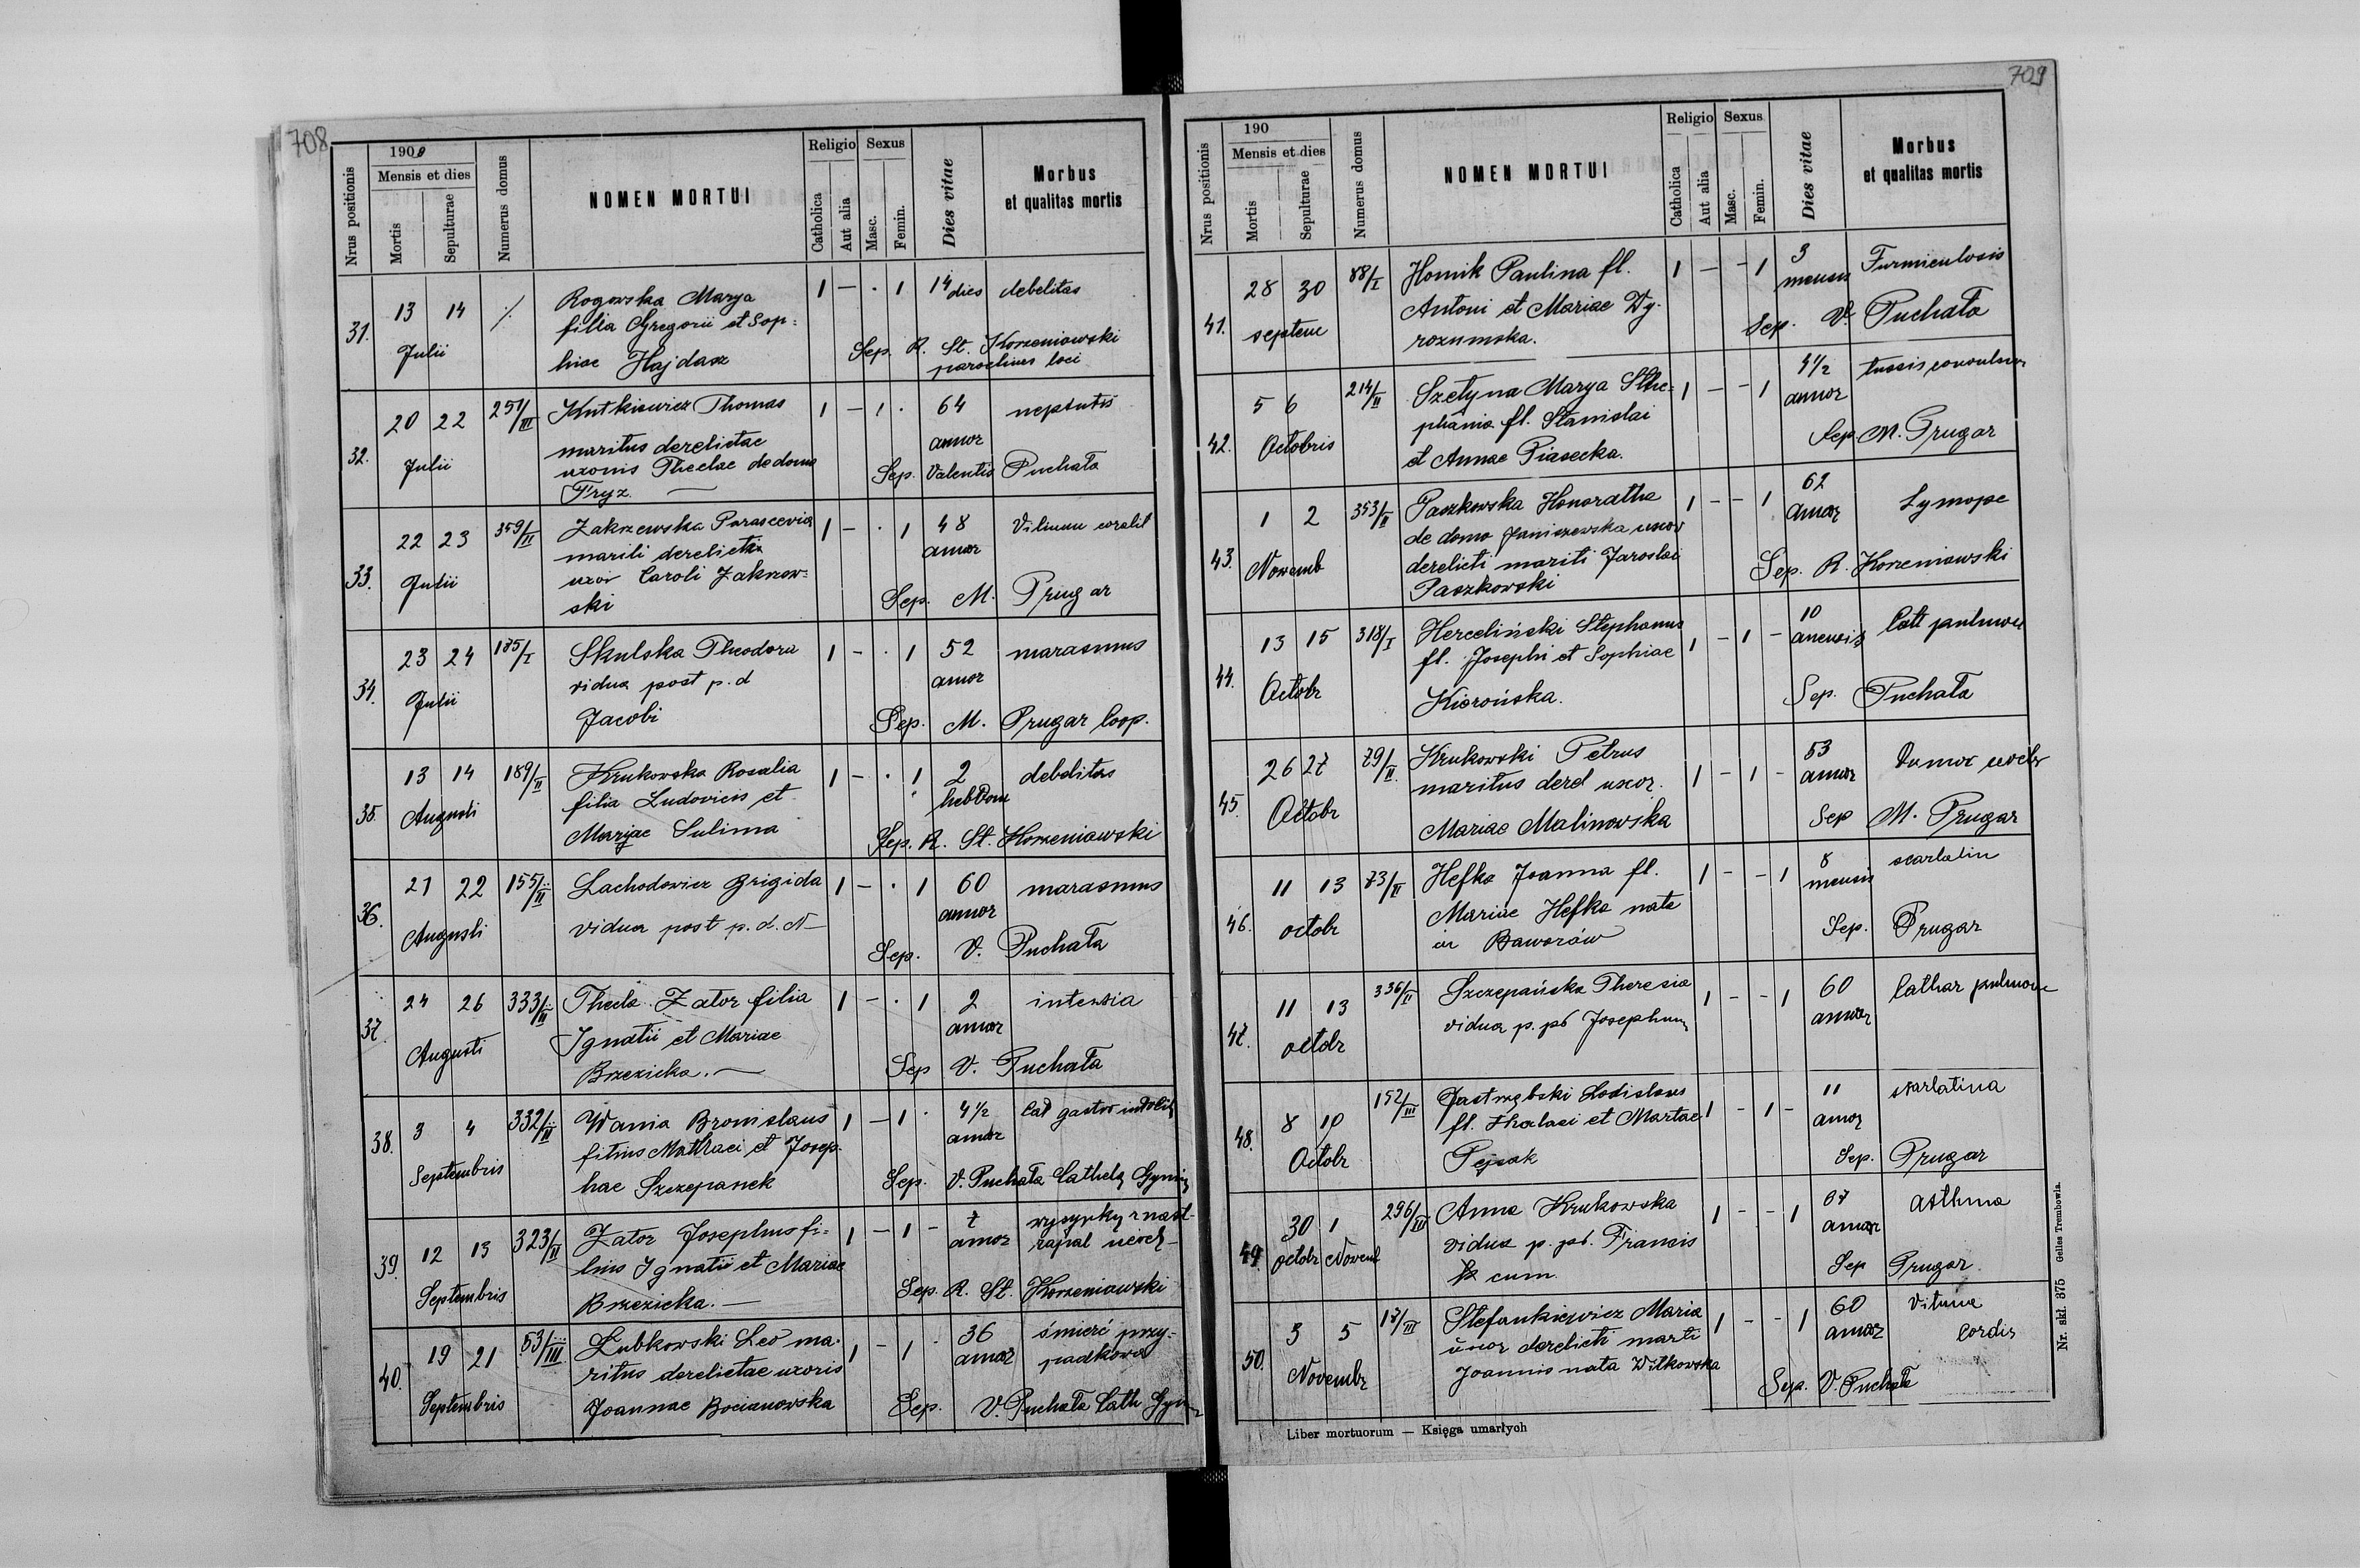 708
Nrus positionis
1909
Mensis et dies
Mortis
Sepulturae
Numerus domus
NOMEN MORTUI
Religio
Catholica
Aut alia
Sexus
Masc.
Femin.
Dies vitae
Morbus
et qualitas mortis
31. 13 14 Julii ⁒ Rogowska Marya 1 – · 1 14 dies debelitas
filia Gregorii et Sop-
hiae Hajdasz
Sep. R. St. Korzeniowski
parochus loci
32. 20 22 Julii 251/III Kutkiewicz Thomas 1 – 1 · 64 annor
maritus derelictae
uxoris Theclae de domo
Fryz. —
Sep. Valentin Puchała
33. 22 23 Julii 359/II Zakrzewska Parascevia 1 – · 1 48 annor Vitium
mariti derelicti
uxor Caroli Zakrzew-
ski
Sep. M. Prugar
34. 23 24 Julii 185/I Skulska Theodora 1 – · 1 52 annor marasmus
vidua post p. d
Jacobi
Sep. M. Prugar Coop.
35. 13 14 Augusti 189/II Krukowska Rosalia 1 – · 1 2 hebdom debelitas
filia Ludovicis et
Mariae Sulima
Sep. R. St. Korzeniowski
36. 21 22 Augusti 155/II Lachodowicz Brigida 1 – · 1 60 annor marasmus
vidua post p. d. N –
Sep. V. Puchała
37. 24 26 Augusti 333/II Thecla Zator filia 1 – · 1 2 annor
Ignatii et Mariae
Brzezicka. —
Sep V. Puchała
38. 3 4 Septembris 332/II Wania Bronislaus 1 – 1 · 4½ annor Cat gastro
filius Mathaei et Josep-
hae Szczepanek
Sep. V. Puchała Catheta Gymn
39. 12 13 Septembris 323/II Zator Josephus fi- 1 – 1 – 7 annor
lius Ignatii et Mariae
Brzezicka. —
Sep. R. St. Korzeniowski
40. 19 21 Septembris 53/III Lubkowski Leo ma- 1 – 1 · 36 annor śmierć przy-
padkowa
ritus derelictae uxoris
Joannae Bocianowska
Sep. V. Puchała Cath Gymn
709
Nrus positionis
190
Mensis et dies
Mortis
Sepulturae
Numerus domus
NOMEN MORTUI
Religio
Catholica
Aut alia
Sexus
Masc.
Femin.
Dies vitae
Morbus
et qualitas mortis
41. 28 30 septem 88/I Homik Paulina fl. 1 – – 1 3 mensis
Antoni et Mariae Wy-
rozumska.
Sep. V. Puchała
42. 5 6 Octobris 214/II Szetyna Marya Ste- 1 – – 1 4½ annor tussis
phania fl. Stanislai
et Annae Piasecka.
Sep M. Prugar
43. 1 2 Novemb 353/II Paszkowska Honoratha 1 – – 1 62 annor
de domo Janiszewska uxor
derelicti mariti Jaroslai
Paszkowski
Sep. R. Korzeniowski
44. 13 15 Octobr 318/I Herceliński Stephanus 1 – 1 – 10 mensis Catt pulmon
fl. Josephi et Sophiae
Kierońska.
Sep. Puchała
45. 26 27 Octobr 79/II Krukowski Petrus 1 – 1 – 53 annor Tumor
maritus derel uxor.
Mariae Malinowska
Sep M. Prugar
46. 11 13 octobr 73/II Hefka Joanna fl. 1 – – 1 8 mensis scarlatin
Mariae Hefka nata
in Baworów
Sep. Prugar
47. 11 13 octobr 336/II Szczepańska Theresia 1 – – 1 60 annor Cathar pulmon
vidua p. ps Josephum
48. 8 10 Octobr 152/III Jastrzębski Ladislaus 1 – 1 – 11 annor scarlatina
fl. et Martae
Pejsak
Sep. Prugar
49. 30 octobr 1 Novemb 296/III Anna Krukowska 1 – – 1 67 annor asthma
vidua p. ps. Francis
cum
Sep Prugar.
50. 3 5 Novembr 17/III Stefankiewicz Maria 1 – – 1 60 annor Vitium
Cordis
uxor derelicti marti
Joannis nata Witkowska
Sep. V. Puchała
Liber mortuorum — Księga umarłych
Nr. skł. 375 Gelles Trembowla.